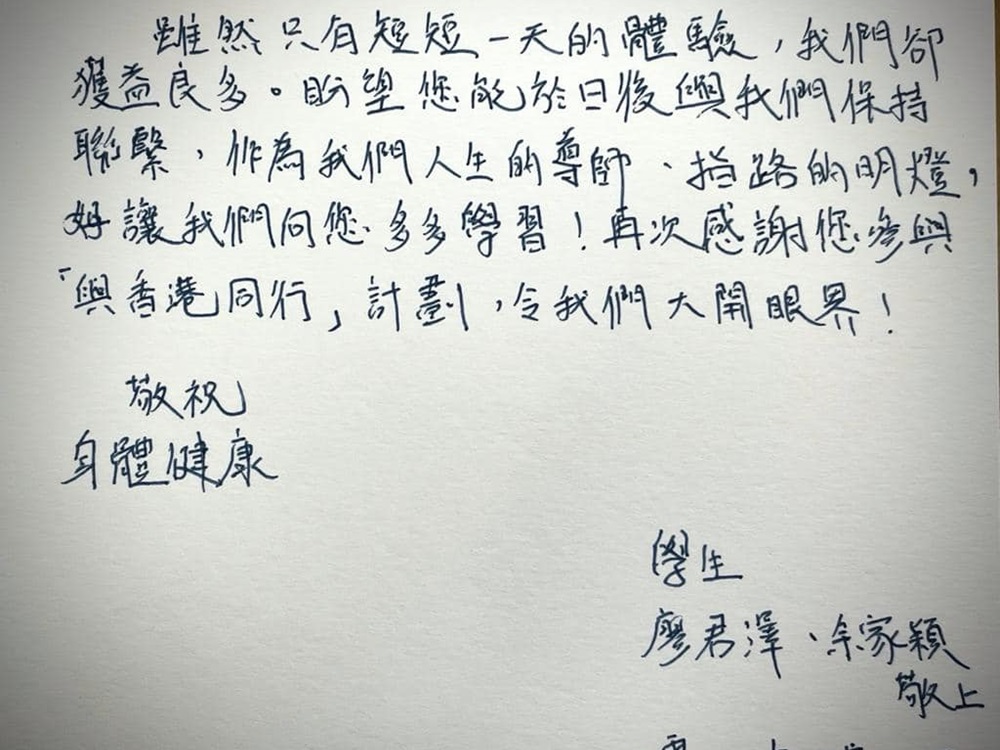 雖然只有短短一天的體驗，我們卻
獲益良多。盼望您能於日後與我們保持
聯繫，作為我們人生的導師、指路的明燈，
好讓我們向您多多學習！再次感謝您參與
「與香港同行」計劃，令我們大開眼界！
敬祝
身體健康
學生
廖君澤、余家穎
敬上